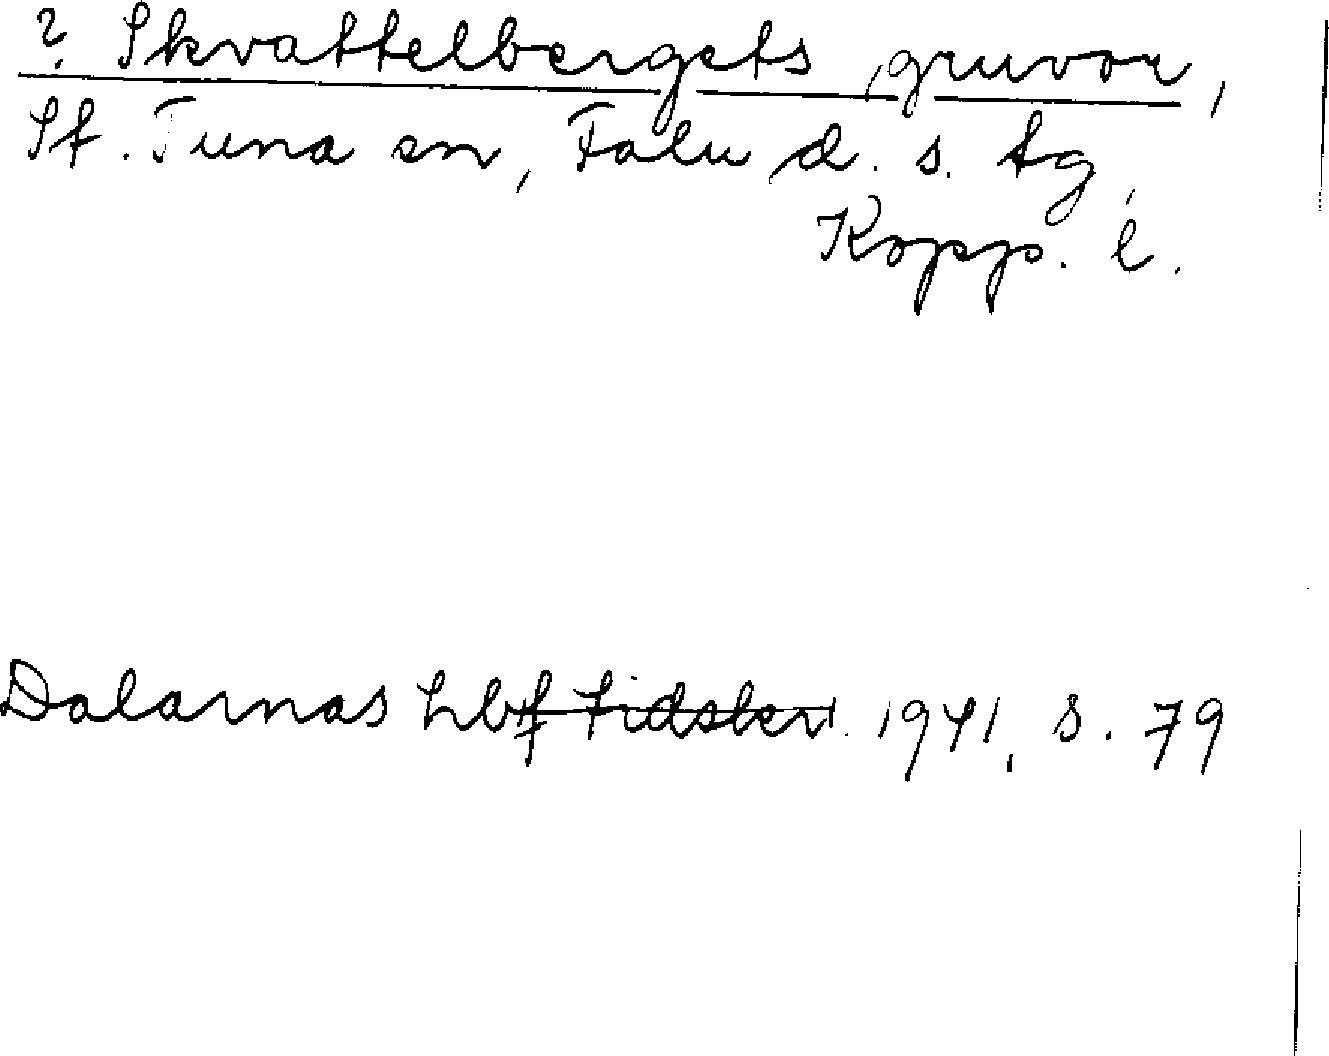 ? Skvattelbergets gruvor,
St. Tuna sn, Falu d. s. tg,
Kopp. l.
Dalarnas hbf tidskr. 1941, s. 79